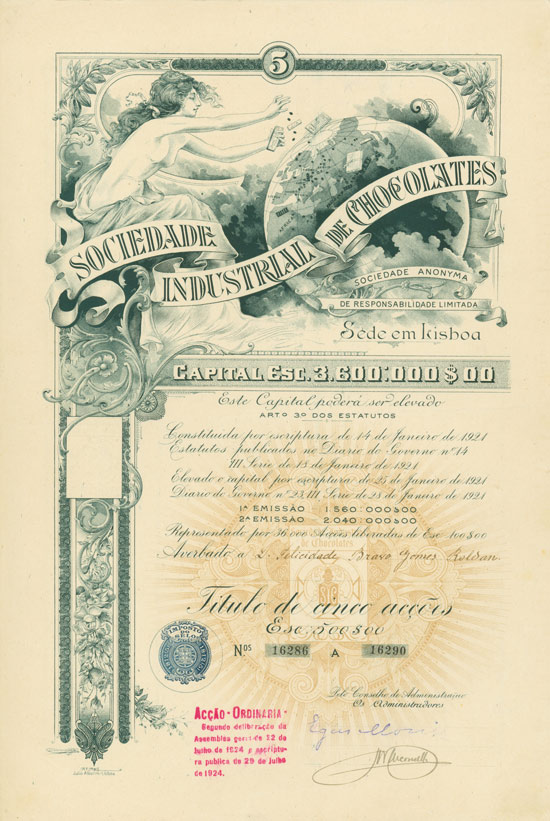 5
SOCIEDADE
INDUSTRIAL
DE CHOCOLATES
SOCIEDADE ANONYMA
DE RESPONSABILIDADE LIMITADA
Séde em Lisboa
CAPITAL ESC. 3.600:000$00
Este Capital poderá ser elevado
ARTO 3.O DOS ESTATUTOS
Constituida por escriptura de 14 de Janeiro de 1921
Estatutos publicados no Diario do Governo nº 14
III Serie de 15 de Janeiro de 1921
Elevado o capital por escriptura de 25 de Janeiro de 1921
Diario do Governo nº 25, III Serie de 28 de Janeiro de 1921
1ª EMISSÃO 1.560:000$00
2ª EMISSÃO 2.040:000$00
Representado por 36:000 Acções liberadas de Esc. 100$00
Averbado a D. Felicidade Bravo Gomes Roldan
Titulo de cinco acções
Esc. 500$00
IMPOSTO
DO
SELO
Nos 16286 A 16290
Pelo Conselho de Administração
Os Administradores
ACÇÃO-ORDINARIA-
Segundo deliberação da
Assembléa geral de 22 de
Julho de 1924 e escriptu-
ra publica de 29 de Julho
de 1924.
Egas Moniz